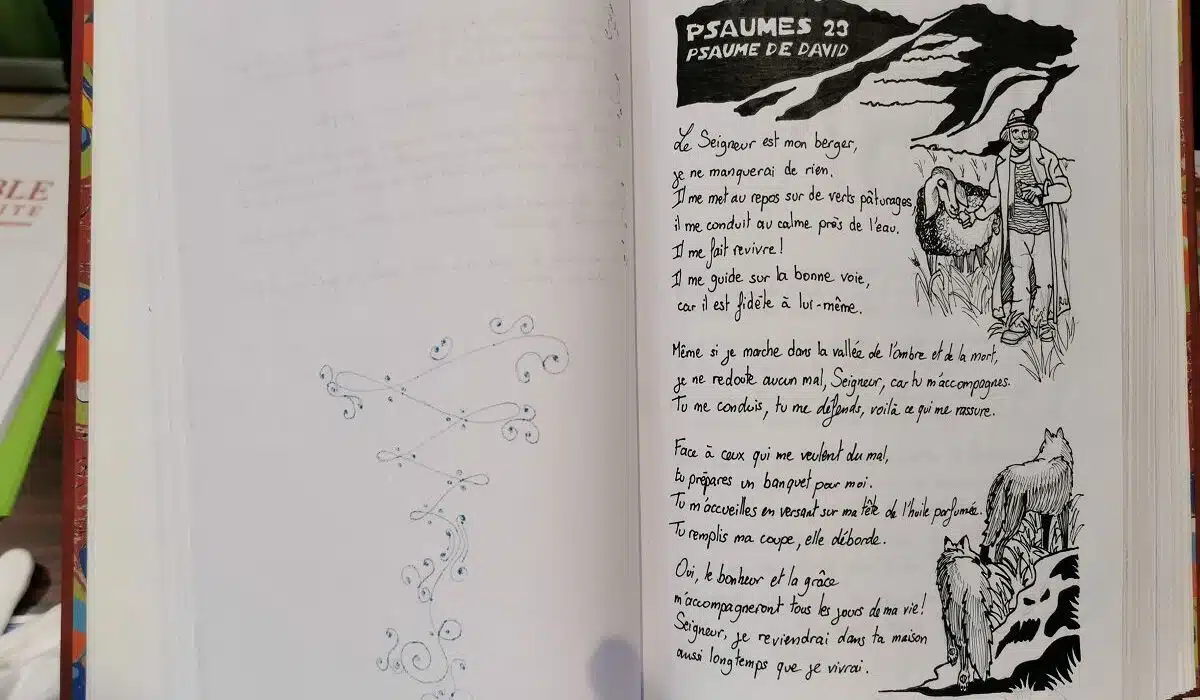 BLE
ITE
PSAUMES 23
PSAUME DE DAVID
Le Seigneur est mon berger,
je ne manquerai de rien.
Il me met au repos sur de verts pâturages,
il me conduit au calme près de l'eau.
Il me fait revivre !
Il me guide sur la bonne voie,
car il est fidèle à lui-même.
Même si je marche dans la vallée de l'ombre et de la mort,
je ne redoute aucun mal, Seigneur, car tu m'accompagnes.
Tu me conduis, tu me défends, voilà ce qui me rassure.
Face à ceux qui me veulent du mal,
tu prépares un banquet pour moi.
Tu m'accueilles en versant sur ma tête de l'huile parfumée.
Tu remplis ma coupe, elle déborde.
Oui, le bonheur et la grâce
m'accompagneront tous les jours de ma vie !
Seigneur, je reviendrai dans ta maison
aussi longtemps que je vivrai.